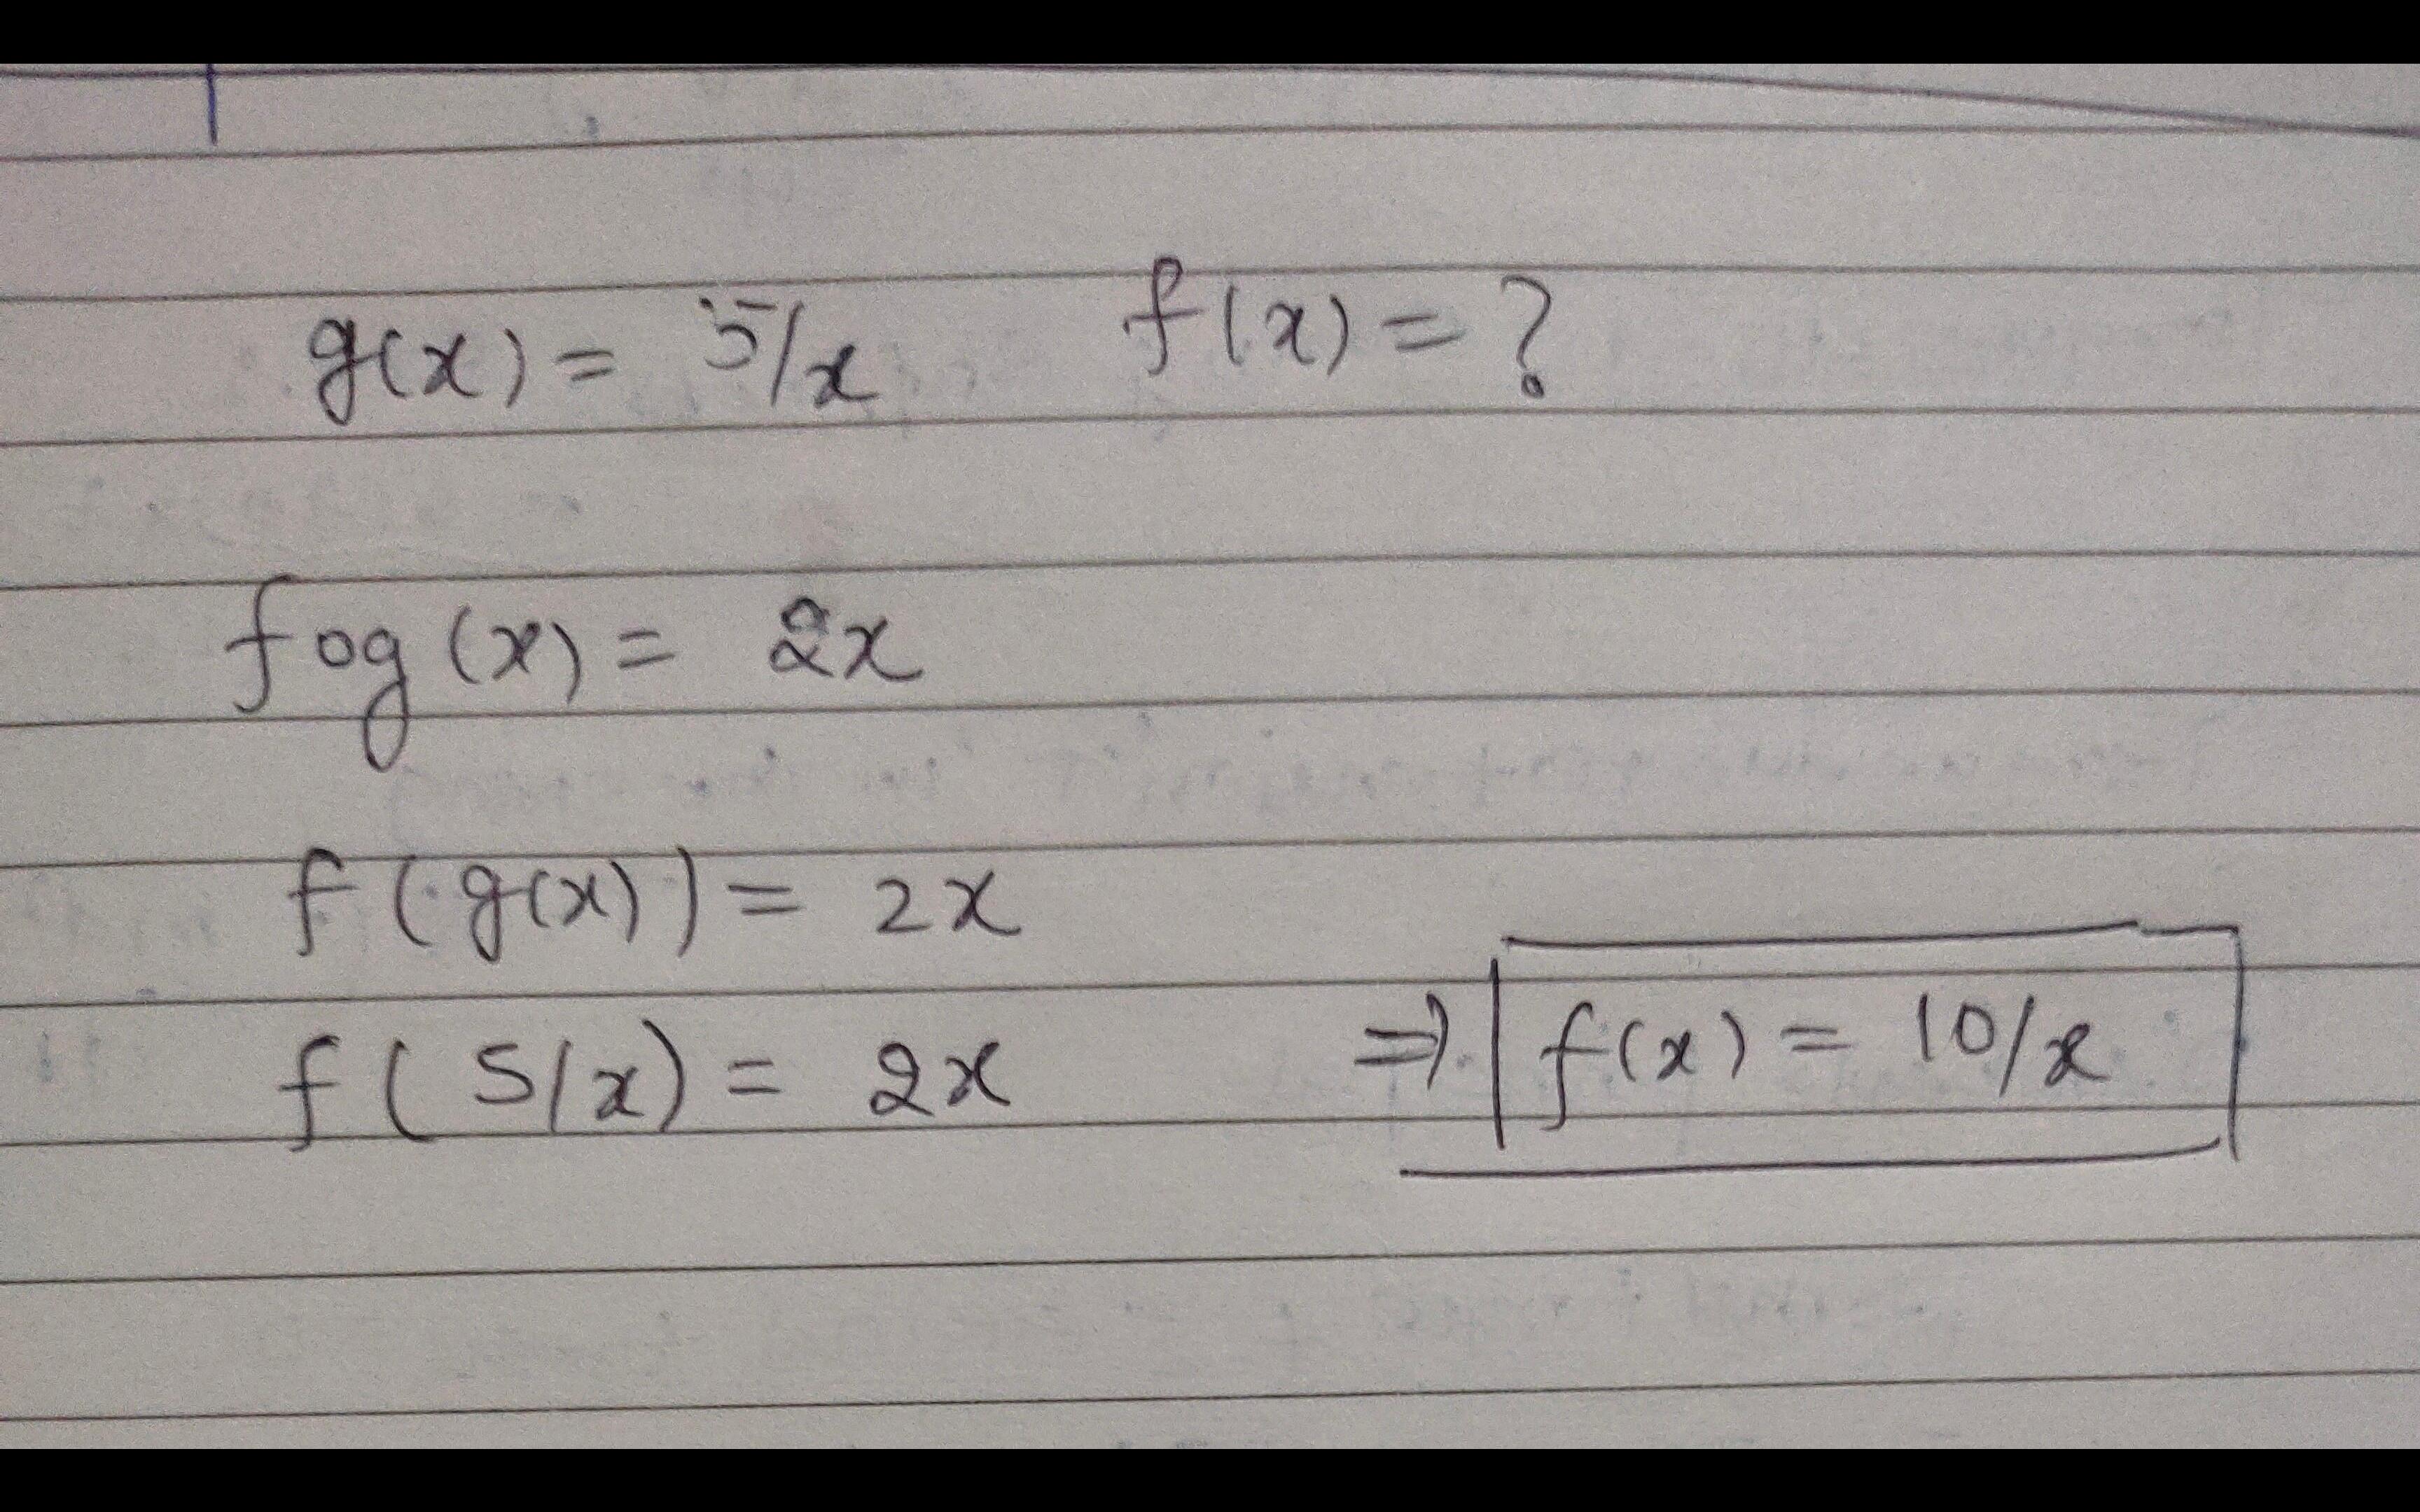 g(x) = 5/x f(x) = ?
fog (x) = 2x
f(g(x)) = 2x
f(5/x) = 2x ⇒ f(x) = 10/x